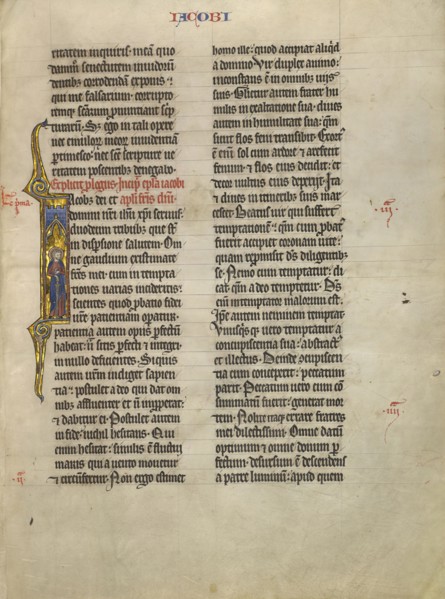 IACOBI
ritatem inquiris: meā quo
dāmodū senectutem inuidorū
dentibꝫ corrodendā exponis ⁊
qui me falsarium: corrupto
remqꝫ scārum pronuntiant scp̄
turarū. Sꝫ ego in tali opere
nec emulorū meorū inuidentiā
ptimesco: nec scē scripture ue
ritatem poscentibꝫ denegabo.
Explicit ꝓlogus. Incip̄ epl̄a iacobi
apl̄i
Iacobꝫ dei et
domini nr̄i ih̄u xp̄i seruus:
duodecim tribubꝫ que s̄t
in dispsione salutem. Om
ne gaudium existimate
fr̄es mei: cum in tempta
tiones uarias incideritis:
scientes quod ꝓbatio fidei
ur̄e patientiam opatur.
patientia autem opus pfectū
habeat: ut sitis pfecti ⁊ integri:
in nullo deficientes. Si quis
autem ur̄m indiget sapien
tia: postulet a deo qui dat om
nibꝫ affluenter et n̄ inpperat:
⁊ dabitur ei. Postulet autem
in fide: nichil hesitans. Qui
enim hesitat: similis ē fluctui
maris qui a uento mouetur
⁊ circūfertur. Non ergo estimet
homo ille: quod accipiat aliqͥd
a domino. Vir duplex animo:
inconstans ē in omnibꝫ uiis
suis. Glorietur autem frater hu
milis in exaltatione sua: diues
autem in humilitate sua: qm̄
sicut flos feni transibit. Exort
ē eni sol cum ardore: ⁊ arefecit
fenum: ⁊ flos eius decidit: et
decor uultus eius depit. Ita
⁊ diues in itineribꝫ suis mar
cescet. Beatus uir qui suffert
temptationē: qm̄ cum ꝓbat
fuerit accipiet coronam uite:
quam repromisit ds̄ diligentibꝫ
se. Nemo cum temptatur: di
cat qm̄ a deo temptetur. Ds̄
eni intemptator malorum est.
Ipse autem neminem temptat.
Vnusqͥsqꝫ uero temptatur a
concupiscentia sua: abstractꝰ
et illectus. Deinde ocupiscen
tia cum conceperit: peccatum
parit. Peccatum uero cum cō
summatum fuerit: generat mor
tem. Nolite itaqꝫ errare fratres
mei dilectissimi. Omne datū
optimum ⁊ omne donum p
fectum: desursum ē descendens
a patre luminū: apud quem
.ii.
.iii.
.iiii.